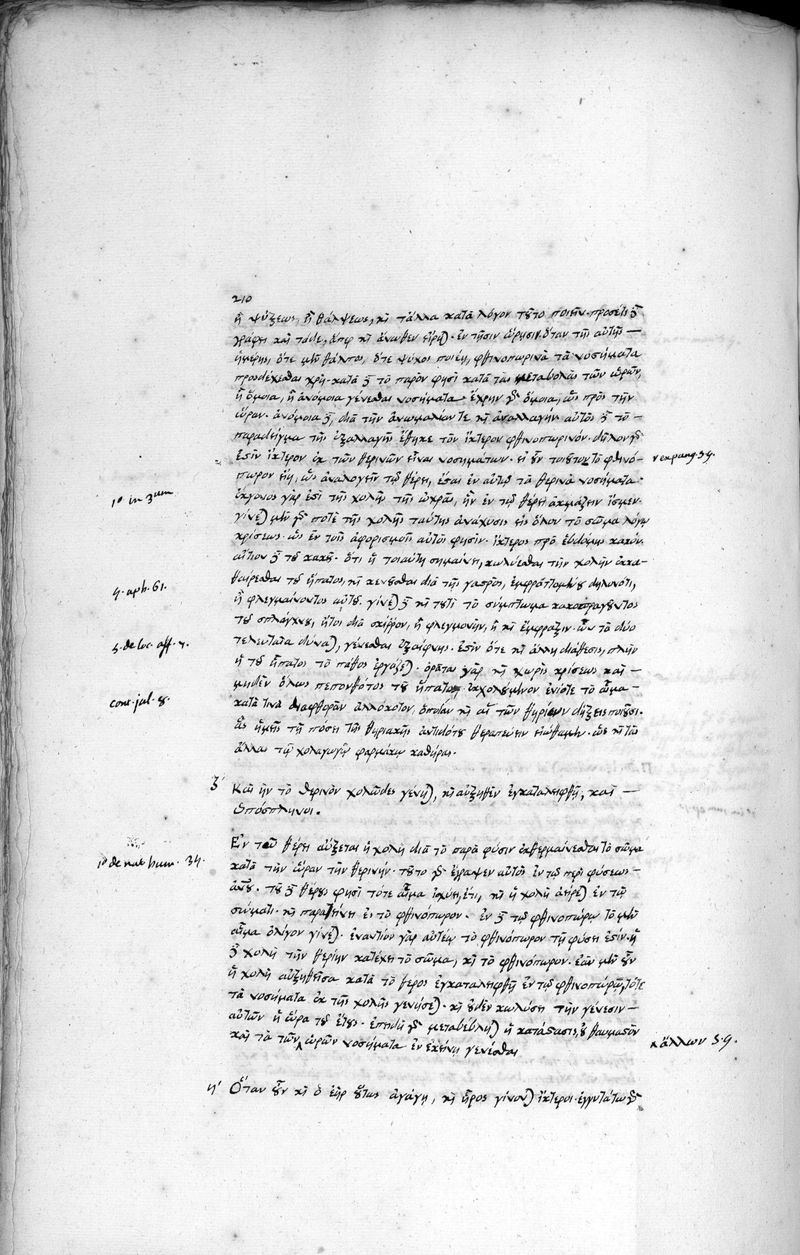 210
ἢ ψύξεως, ἢ θάλψεως, κỳ τἄλλα κατὰ λόγον τοῦτο ποιεῖν. προσέτι δὲ
γράφει καὶ τάδε, ἅπερ κỳ ἄνωθεν εἴρηται. ἐν τῇσιν ὥρῃσιν, ὅταν τῆς αὐτῆς
ἡμέρης, ὁτὲ μὲν θάλπος, ὁτὲ ψύχος ποιέῃ, φθινοπωρινὰ τὰ νοσήματα
προσδέχεσθαι χρή. κατὰ δὲ τὸ παρὸν φησὶ κατὰ τὰς μεταβολὰς τῶν ὡρῶν,
ἢ ὅμοια, ἢ ἀνόμοια γένεσθαι νοσήματα. ὅμοια, ὡς πρὸς τὴν
ὥραν. ἀνόμοια δὲ, διὰ τὴν ἀνωμαλίαν τε κỳ ἀναλλαγὴν αὐτῶν δὲ τὸ
παράδειγμα τῆς ἐξαλλαγῆς ἔθηκε τὸν ἴκτερον φθινοπωρινόν. δῆλον γὰρ
ἐστὶν ἴκτερον ἐκ τῶν θερινῶν εἶναι νοσημάτων. εἰ οὖν τοιοῦτο τὸ φθινό-
πωρον εἴη, ὡς ἀναλογεῖν τῷ θέρει, ἔσται ἐν αὐτῷ τὰ θερινὰ νοσήματα.
ἔκγονος γάρ ἐστι τῆς χολῆς τῆς ὠχρᾶς, ἣν ἐν τῷ θέρει ἀκμάζειν ἴσμεν.
γίνεται μὲν γὰρ ποτὲ τῆς χολῆς ταύτης ἀνάχυσις εἰς ὅλον τὸ σῶμα λόγῳ
κρίσεως. ὡς ἐν τοῖς ἀφορισμοῖς αὐτὸς φησίν. ἴκτερος πρὸ ἑβδόμης κακόν.
αἴτιον δὲ τοῦ κακοῦ. ὅτι ἡ τοιαύτη σημαίνει, κωλύεσθαι τὴν χολὴν ἐκκα-
θαίρεσθαι τοῦ ἥπατος, κỳ κενοῦσθαι διὰ τῆς γαστρὸς, ἐμφραττομένου δηλονότι,
ἢ φλεγμαίνοντος αὐτοῦ. γίνεται δὲ κỳ τοῦτο τὸ σύμπτωμα κακοπραγοῦντος
τοῦ σπλάγχνου, ἤτοι διὰ σκίρρον, ἢ φλεγμονὴν, ἢ κỳ ἔμφραξιν. ὧν τὰ δύο
τελευταῖα δύναται, γένεσθαι ἐξαίφνης. ἐστὶν ὅτε κỳ ἄλλη διάθεσις, πλὴν
ἢ τοῦ ἥπατος τὸ πάθος ἐργάζεται. ὁρᾶται γὰρ κỳ χωρὶς κρίσεως καὶ
μηδὲν ὅλως πεπονθότος τοῦ ἥπατος ἐκχολούμενον ἐνίοτε τὸ αἷμα
κατὰ τινὰ διαφθορὰν ἀλλόκοτον, ὁποίαν κỳ αἱ τῶν θηρίων δήξεις ποιοῦσι.
ἃς ἡμεῖς τῇ πόσει τῆς θηριακῆς ἀντιδότου θεραπεύειν εἰώθαμεν. ὡς κỳ τὰς
ἄλλας τῷ χολαγωγῷ φαρμάκῳ καθῆραι.
ζ' Καὶ ἢν τὸ θερινὸν χολῶδες γένηται, κỳ αὐξηθὲν ἐγκαταλειφθῇ, καὶ
ὑπόσπληνοι.
Ἐν τῷ θέρει αὔξεται ἡ χολὴ διὰ τὸ παρὰ φύσιν ἐκθερμαίνεσθαι τὸ σῶμα
κατὰ τὴν ὥραν τὴν θερινήν. τοῦτο γὰρ ἔγραψεν αὐτὸς ἐν τῷ περὶ φύσεως
ἀνθρώπου. τοῦ δὲ θέρους φησὶ τότε αἷμα ἰσχύει ἔτι, κỳ ἡ χολὴ αἴρεται ἐν τῷ
σώματι. κỳ παρατείνει ἐν τὸ φθινόπωρον. ἐν δὲ τῷ φθινοπώρῳ τὸ μὲν
αἷμα ὀλίγον γίνεται. ἐναντίον γὰρ αὐτέῳ τὸ φθινόπωρον τῇ φύσει ἐστίν. ἡ
δὲ χολὴ τὴν θερίην κατέχει τὸ σῶμα, κỳ τὸ φθινόπωρον. ἐὰν μὲν οὖν
ἡ χολὴ αὐξηθεῖσα κατὰ τὸ θέρος ἐγκαταλειφθῇ ἐν τῷ φθινοπώρῳ, τότε
τὰ νοσήματα ἐκ τῆς χολῆς γενήσεται. κỳ οὐδὲν κωλύσει τὴν γένεσιν
αὐτῶν ἡ ὥρα τοῦ ἔτους. ἐπειδὴ γὰρ μεταβέβληται ἡ κατάστασις, οὐ θαυμαστὸν
καὶ τὰ τῶν ‸ ὡρῶν νοσήματα ἐν ἐκείνῃ γενέσθαι
η' Ὅταν οὖν κỳ ὁ ἐὴρ οὕτως ἀγάγῃ, κỳ ἦρος γίνονται ἴκτεροι. ἐγγυτάτω γὰρ
1º in 3um
4. aph. 61.
5. de loc. aff. 7.
cont. jul. 8.
1º de nat hum. 34.
v expung. 59.
‸ ἄλλων 59.